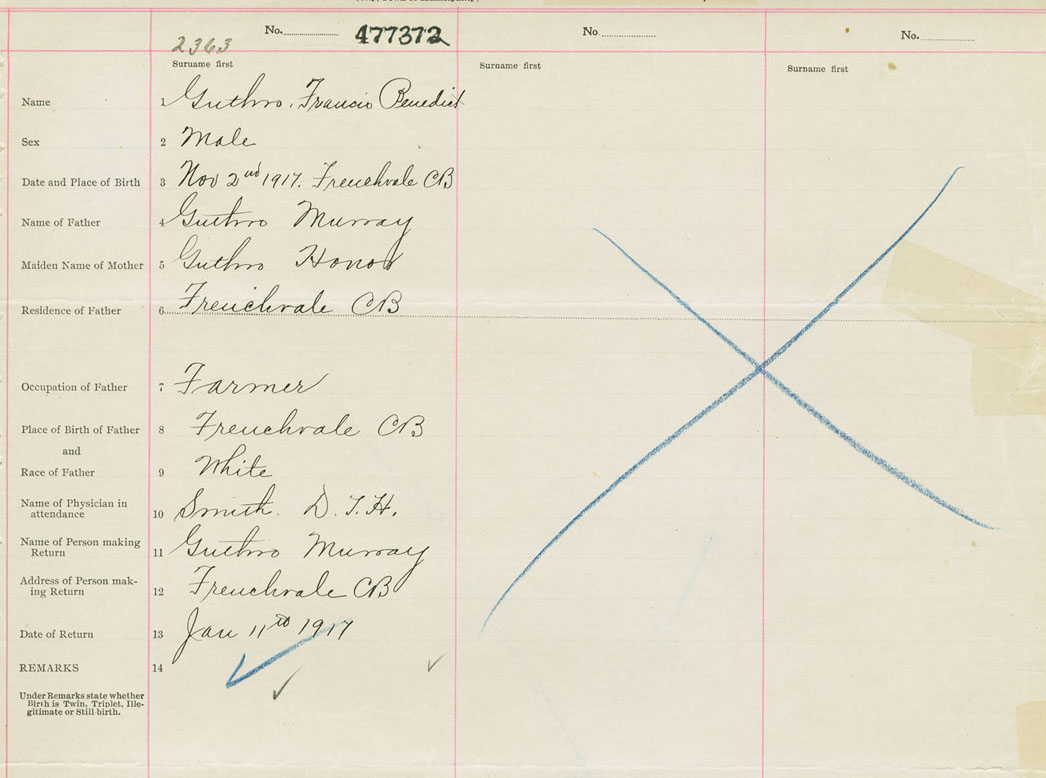 No. 477372 No. No.
2363
Surname first Surname first Surname first
Name 1 Guthro, Francis Benedict
Sex 2 Male
Date and Place of Birth 3 Nov 2nd 1917. Frenchvale CB
Name of Father 4 Guthro Murray
Maiden Name of Mother 5 Guthro Honor
Residence of Father 6 Frenchvale CB
Occupation of Father 7 Farmer
Place of Birth of Father 8 Frenchvale CB
and
Race of Father 9 White
Name of Physician in
attendance 10 Smith. D. T. H.
Name of Person making
Return 11 Guthro Murray
Address of Person mak-
ing Return 12 Frenchvale CB
Date of Return 13 Jan 11th 1917
REMARKS 14
Under Remarks state whether
Birth is Twin, Triplet, Ille-
gitimate or Still-birth.